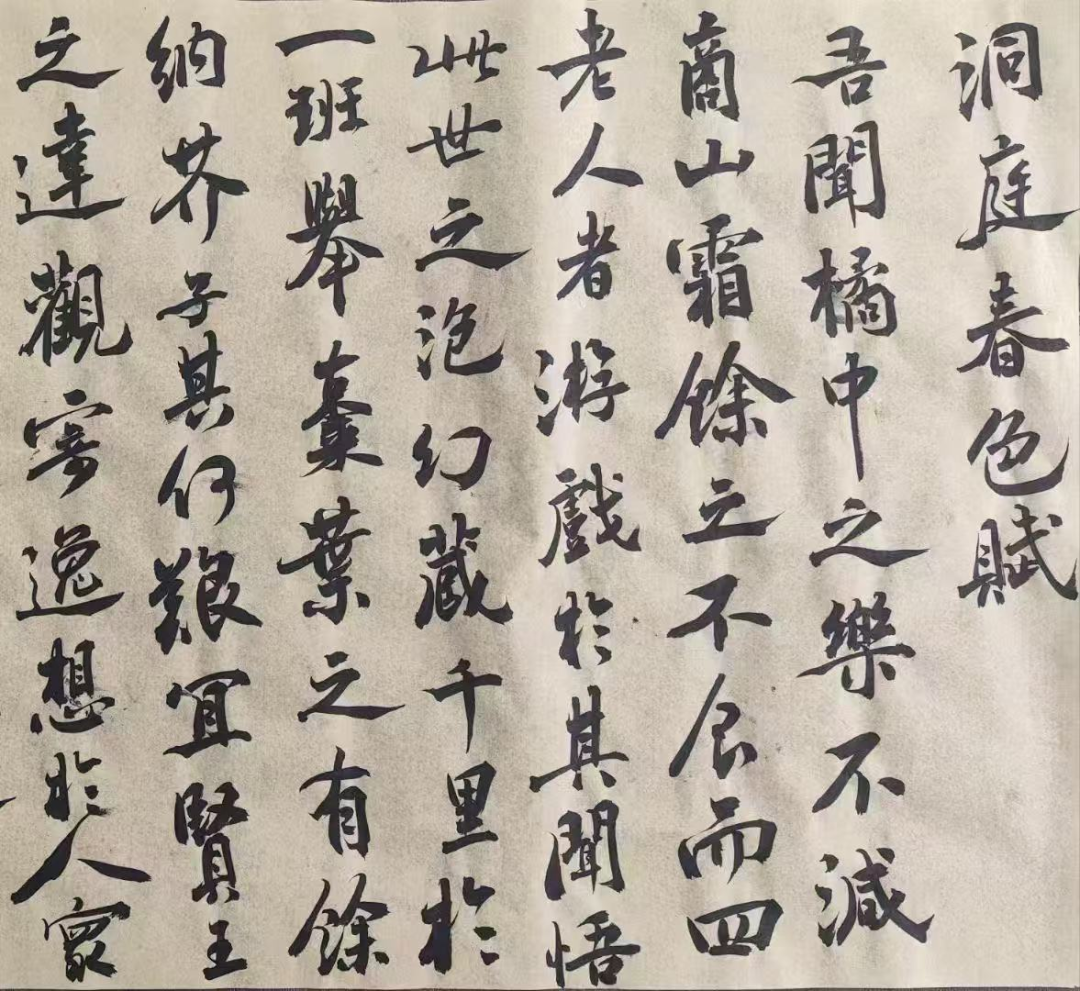 洞庭春色賦
吾聞橘中之樂不減
商山霜餘之不食而四
老人者游戲於其聞悟
此世之泡幻藏千里於
一班舉棗葉之有餘
納芥子其何艱宜賢王
之達觀寄逸想於人寰